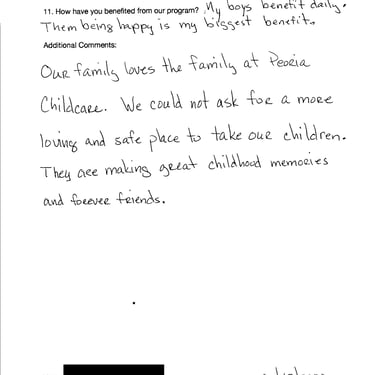 11. How have you benefited from our program? My boys benefit daily.
Them being happy is my biggest benefit.
Additional Comments:
Our family loves the family at Peoria
Childcare. We could not ask for a more
loving and safe place to take our children.
They are making great childhood memories
and forever friends.